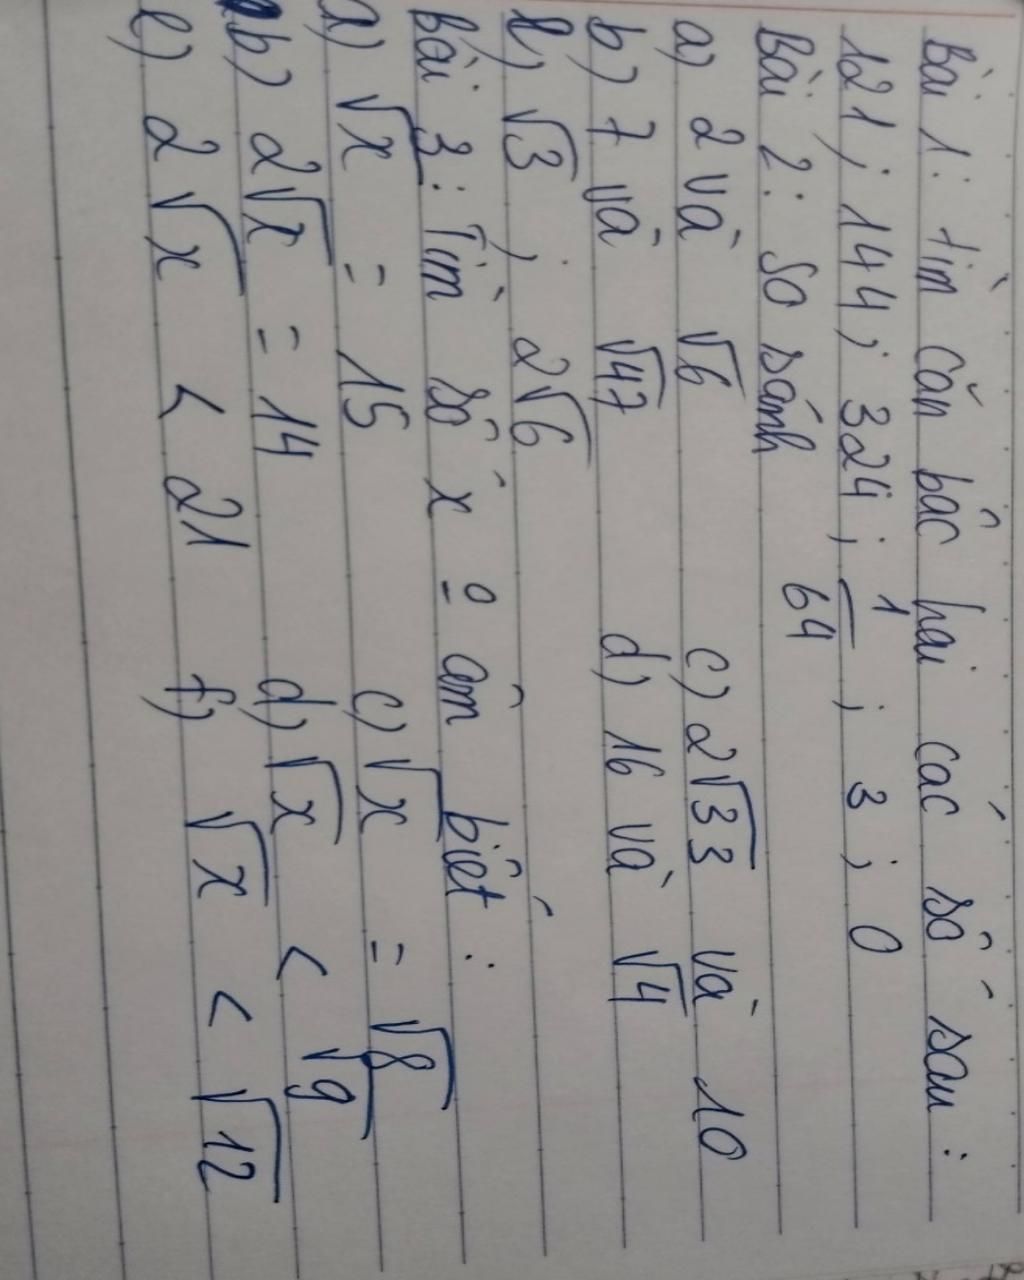 Bài 1: tìm căn bâc hai các số sau:
121; 144; 324; 1/64; 3; 0
Bài 2: So sánh
a) 2 và √6 c) 2√33 và 10
b) 7 và √47 d) 16 và √4
l) √3 ; 2√6
Bài 3: Tìm số x 0 âm biết:
a) √x = 15 c) √x = √8
b) 2√x = 14 d) √x < √9
e) 2√x < 21 f) √x < √12